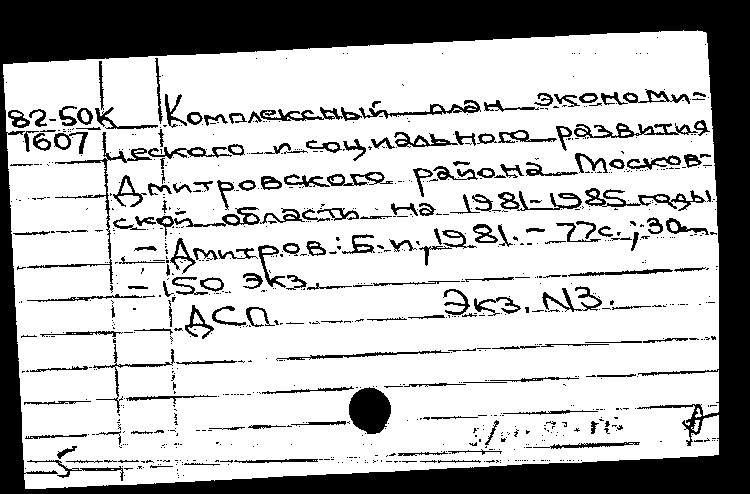 82-50К Комплексный план экономи-
1607 ческого и социального развития
Дмитровского района Москов-
ской области на 1981-1985 годы
– Дмитров: Б.и., 1981. – 77с.; 30см
– 150 экз.
ДСП. Экз. N3.
5